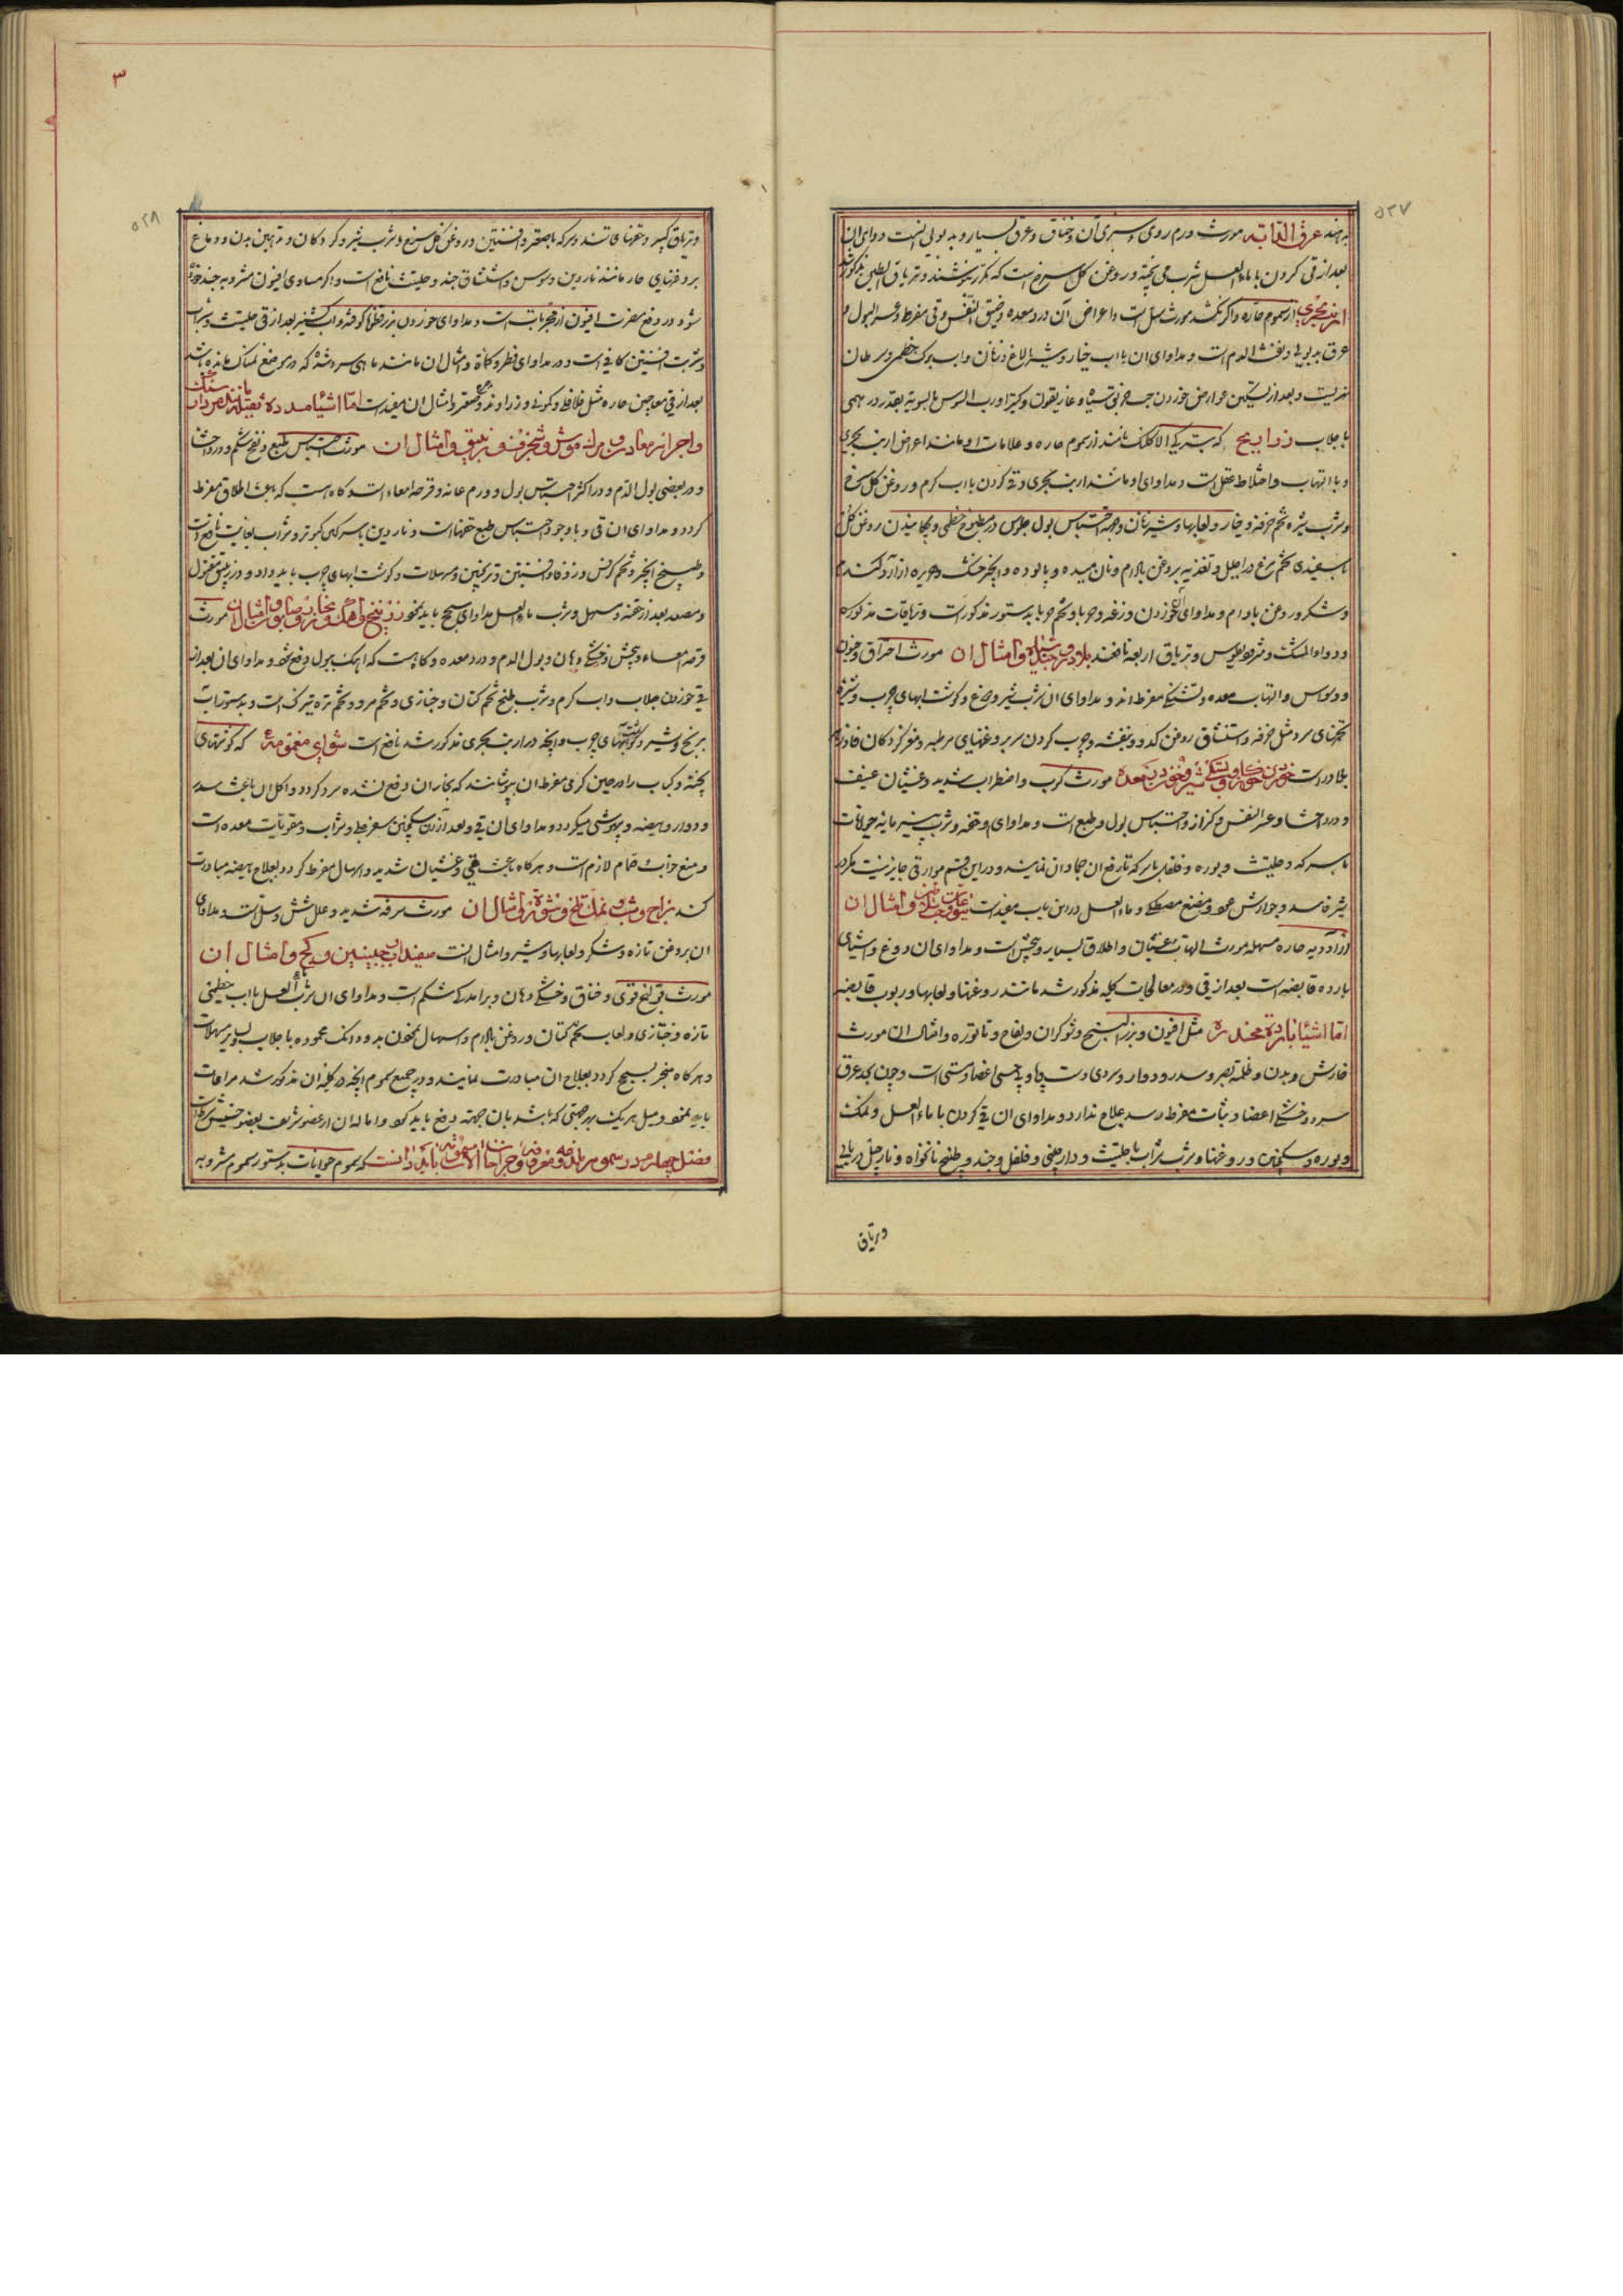 ۵۲۷
بدهند عرق الدابه مورث ورم روی و سبزی آن و خناق و عرق بسیار و بدبوئی است دوای آن
بعد از قی کردن با ماء العسل شرب می پخته و روغن کل سرخ است که مکرر بنوشند و تریاق الطین مذکور شد
ارنب بحری از سموم حاره و اگر نکشد مورث سل است و اعراض آن درد معده و ضیق النفس و قی مفرط و عسر البول و
عرق بدبوئی و نفث الدم است و مداوای ان با اب خیار و شیر الاغ و زنان و اب برک خطمی و سرطان
نهریست و بعد از تسکین عوارض خوردن خربق سیاه و غاریقون و کتیرا و رب السوس بالسویه بقدر درهمی
با جلاب ذراریح که بترکی الاکلنک نامند از سموم حاره و علامات او مانند اعراض ارنب بحری
و با التهاب و اختلاط عقل است و مداوای او مانند ارنب بحری و قی کردن با اب کرم و روغن کل سرخ
و شرب شیره تخم خرفه و خیار و لعابها و شیر زنان و جهة احتباس بول جلوس در مطبوخ خطمی و چکانیدن روغن کل
با سفیدی تخم مرغ در احلیل و تغذیه بروغن بادام و نان میده و پالوده و انجیر خشک و حریره از ارد کندم
و شکر و روغن بادام و مداوای خوردن وزغه و حربا و تخم حربا بدستور مذکور است و تریاقات مذکوره
و دواء المسک و مثرودیطوس و تریاق اربعه نافعند بلادر و جند سیاه و امثال ان مورث احراق و جنون
و وسواس و التهاب معده و تشنکی مفرط اند و مداوای ان شرب شیر و دوغ و کوشت ابهای چرب و شیره
تخمهای سرد مثل خرفه و استنشاق روغن کدو و بنفشه و چرب کردن سر بروغنهای مرطبه و مغز کردکان فادزهر
بلادر است خوردن خون کاو و بستکی شیر و خون در معده مورث کرب و اضطراب شدید و غشیان عنیف
و درد احشا و عسر النفس و کزاز و احتباس بول و طبع است و مداوای او حقنه و شرب پنیر مایه حیوانات
با سرکه و حلتیت و بوره و فلفل با سرکه تا رفع انجماد ان نمایند و در این قسم موارد قی جایز نیست مکرر
شیره سد و جوارش عود و مضغ مصطکی و ماء العسل در این باب مفید است یتوعات و امثال ان
از ادویه حاره مسهله مورث التهاب و غشیان و اطلاق بسیار و پیچش است و مداوای ان دوغ و اشیای
بارده قابضه است بعد از قی و در معالجات کلیه مذکور شد مانند روغنها و لعابها و ربوب قابضه
اما اشیاء بارده مخدره مثل افیون و بزر البنج و شوکران و لفاح و تاتوره و امثال ان مورث
خارش و بدن و ظلمة بصر و سدر و دوار و سردی دست و پا و بی حسی اعضا و سستی است و چون بحد عرق
سرد و خشکی اعضا و ثبات مفرط رسد علاج ندارد و مداوای ان قی کردن با ماء العسل و نمک
و بوره و سکنجبین و روغنها و شرب شراب با حلتیت و دارچینی و فلفل و جند و طبخ نانخواه و نارجیل دریائی
و تریاق
۳
۵۲۸
و تریاق کبیر و حقنها نافعند و سرکه با صعتر و افسنتین و روغن کل سرخ و شرب شیر و کردکان و تدهین بدن و دماغ
بروغنهای حار مانند ناردین و سوسن و استنشاق جند و حلتیت نافع است و اکر مساوی افیون مشروبه جند خورده
شود در دفع مضرت افیون از مجربات است و مداوای خوردن بزرقطونا کوفته و اب کشنیز بعد از قی حلتیت و شراب
و شربت افسنتین کافی است و در مداوای فطر و کماة و امثال ان مانند ماهی سرد شده که در موضع نمناک مانده باشد
بعد از قی معاجین حاره مثل فلافلی و کمونی و زراوند و صعتر و امثال ان مفید است اما اشیاء مدده ثقیله مانند مرداسنک
و اجزاء معادن و مرك موش و شنجرف و زیبق و امثال ان مورث احتباس طبع و نفخ شکم و درد احشا
و در بعضی بول الدم و در اکثر احتباس بول و ورم عانه و قرحه امعاء است و کاه هست که باعث اطلاق مفرط
کردد و مداوای ان قی و با وجود احتباس طبع حقنها است و ناردین با سرکین کبوتر و شراب بغایت نافع است
و طبیخ انجیر و تخم کرفس و زوفا و افسنتین و ترنجبین و مسهلات و کوشت ابهای چرب باید داد و در زیبق مقتول
و مصعد بعد از حقنه و مسهل و شرب ماء العسل مداوای سحج باید نمود زرنیخ و اهک و زنجار و صابون و امثال ان مورث
قرحه امعاء و پیچش و خشکی دهان و بول الدم و درد معده و کاهست که اهک ببول دفع شود و مداوای ان بعد از
قی خوردن جلاب و اب کرم و شرب طبخ تخم کتان و خبازی و تخم مرو و تخم تره تیزک است و بدستور اب
برنج و شیر و کوشت ابهای چرب و انچه در ارنب بحری مذکور شد نافع است شوای مغمومه که کوشتهای
پخته و کباب را در حین کرمی مفرط ان بپوشانند که بخار ان دفع نشده سرد کردد و اکل ان باعث سدر
و دوار و هیضه و بیهوشی میکردد و مداوای ان قی و بعد از ان سکنجبین سفرجلی و شراب و مقویات معده است
و منع خواب و حمام لازم است و هرکاه باعث قی و غشیان شدید و اسهال مفرط کردد بعلاج هیضه مبادرت
کنند زاج و شب و نمک تلخ و نشوق و امثال ان مورث سرفه شدید و علل شش و سل است و مداوای
ان بروغن تازه و شکر و لعابها و شیر و امثال انست سفیداب و جبسین و کج و امثال ان
مورث قولنج قوی و خناق و خشکی دهان و برامدن شکم است و مداوای ان شرب ماء العسل با اب خطمی
تازه و خبازی و لعاب تخم کتان و روغن بادام و اسهال نمودن بدو دانک محموده با جلاب و سایر مسهلات
و هرکاه منجر بسحج کردد بعلاج ان مبادرت نمایند و در جمیع سموم انچه در کلیه ان مذکور شد مراعات
باید نمود و میل هریک بهر جهتی که باشد بان جهة دفع باید کرد و اماله ان از عضو شریف بعضو خسیس
فصل چهارم در سموم ملذوعه و معروضه و جراحات الات مسمومه باید دانست که سموم حیوانات بدستور سموم مشروبه